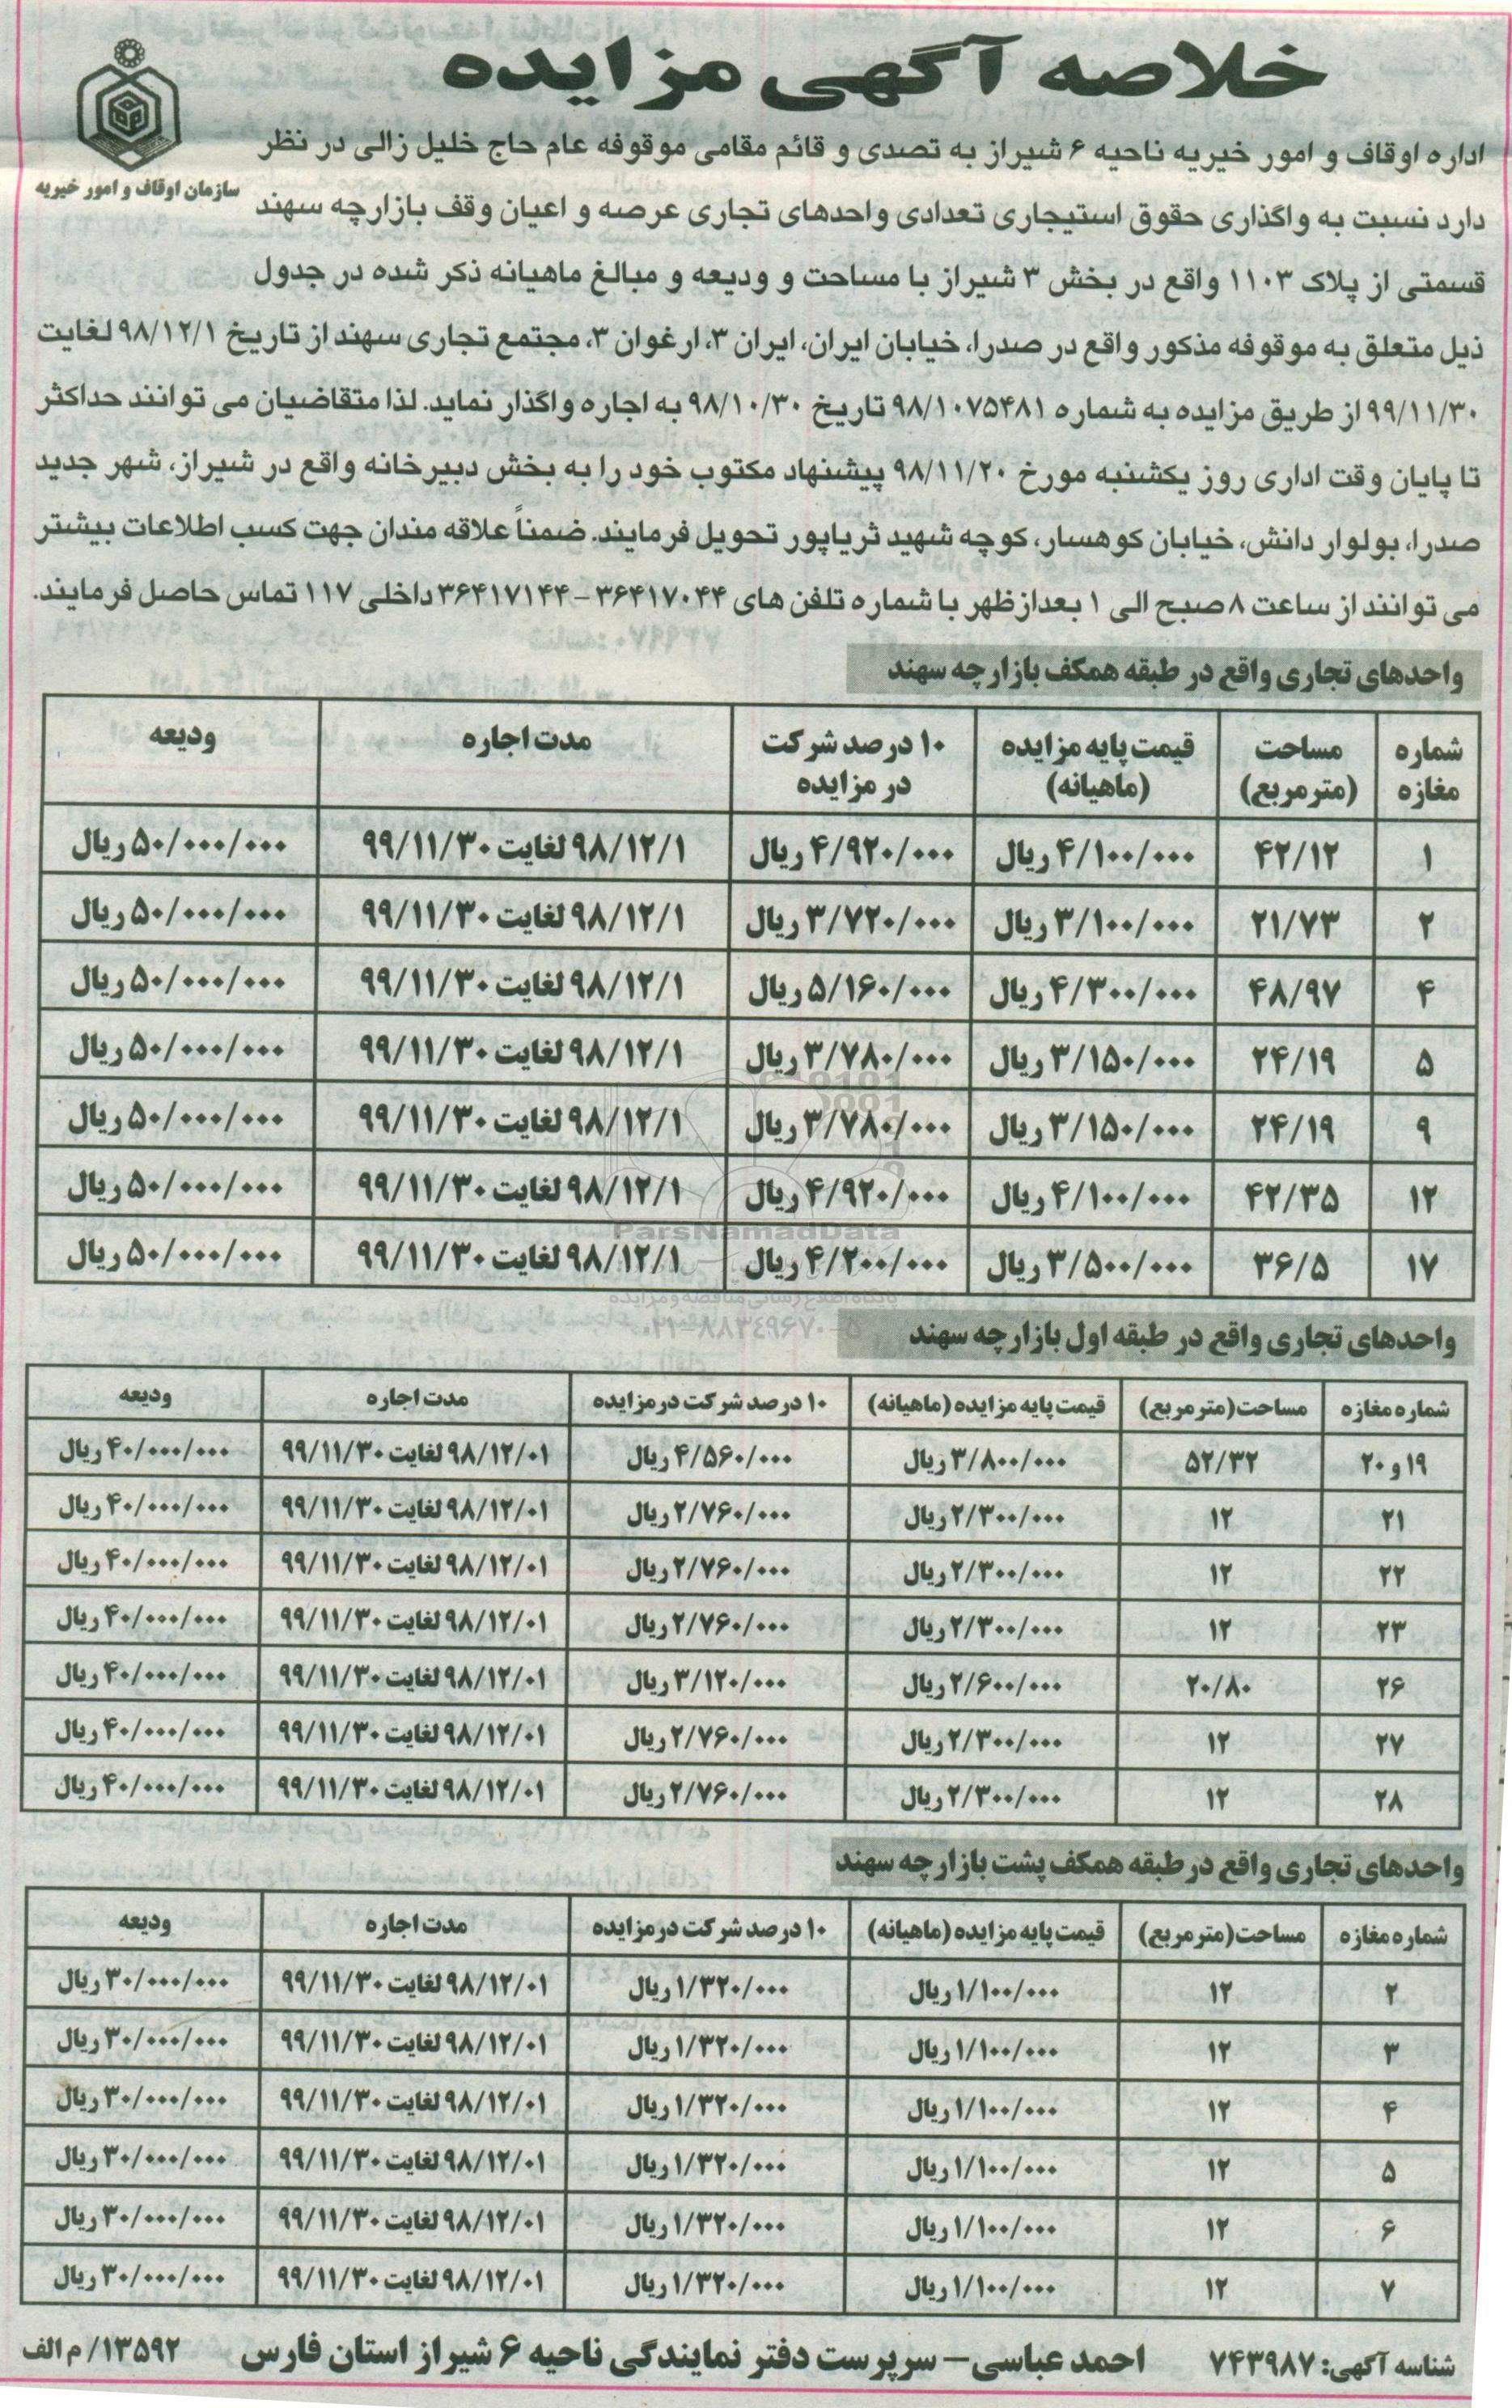 خلاصه آگهی مزایده
سازمان اوقاف و امور خیریه
اداره اوقاف و امور خیریه ناحیه ۶ شیراز به تصدی و قائم مقامی موقوفه عام حاج خلیل زالی در نظر
دارد نسبت به واگذاری حقوق استیجاری تعدادی واحدهای تجاری عرصه و اعیان وقف بازارچه سهند
قسمتی از پلاک ۱۱۰۳ واقع در بخش ۳ شیراز با مساحت و ودیعه و مبالغ ماهیانه ذکر شده در جدول
ذیل متعلق به موقوفه مذکور واقع در صدرا، خیابان ایران، ایران ۳، ارغوان ۳، مجتمع تجاری سهند از تاریخ ۹۸/۱۲/۱ لغایت
۹۹/۱۱/۳۰ از طریق مزایده به شماره ۹۸/۱۰۷۵۴۸۱ تاریخ ۹۸/۱۰/۳۰ به اجاره واگذار نماید. لذا متقاضیان می توانند حداکثر
تا پایان وقت اداری روز یکشنبه مورخ ۹۸/۱۱/۲۰ پیشنهاد مکتوب خود را به بخش دبیرخانه واقع در شیراز، شهر جدید
صدرا، بولوار دانش، خیابان کوهسار، کوچه شهید ثریاپور تحویل فرمایند. ضمناً علاقه مندان جهت کسب اطلاعات بیشتر
می توانند از ساعت ۸ صبح الی ۱ بعدازظهر با شماره تلفن های ۳۶۴۱۷۰۴۴-۳۶۴۱۷۱۴۴ داخلی ۱۱۷ تماس حاصل فرمایند.
واحدهای تجاری واقع در طبقه همکف بازارچه سهند
شماره مغازه | مساحت (مترمربع) | قیمت پایه مزایده (ماهیانه) | ۱۰ درصد شرکت در مزایده | مدت اجاره | ودیعه
۱ | ۴۲/۱۲ | ۴/۱۰۰/۰۰۰ ریال | ۴/۹۲۰/۰۰۰ ریال | ۹۸/۱۲/۱ لغایت ۹۹/۱۱/۳۰ | ۵۰/۰۰۰/۰۰۰ ریال
۲ | ۲۱/۷۳ | ۳/۱۰۰/۰۰۰ ریال | ۳/۷۲۰/۰۰۰ ریال | ۹۸/۱۲/۱ لغایت ۹۹/۱۱/۳۰ | ۵۰/۰۰۰/۰۰۰ ریال
۴ | ۴۸/۹۷ | ۴/۳۰۰/۰۰۰ ریال | ۵/۱۶۰/۰۰۰ ریال | ۹۸/۱۲/۱ لغایت ۹۹/۱۱/۳۰ | ۵۰/۰۰۰/۰۰۰ ریال
۵ | ۲۴/۱۹ | ۳/۱۵۰/۰۰۰ ریال | ۳/۷۸۰/۰۰۰ ریال | ۹۸/۱۲/۱ لغایت ۹۹/۱۱/۳۰ | ۵۰/۰۰۰/۰۰۰ ریال
۹ | ۲۴/۱۹ | ۳/۱۵۰/۰۰۰ ریال | ۳/۷۸۰/۰۰۰ ریال | ۹۸/۱۲/۱ لغایت ۹۹/۱۱/۳۰ | ۵۰/۰۰۰/۰۰۰ ریال
۱۲ | ۴۲/۳۵ | ۴/۱۰۰/۰۰۰ ریال | ۴/۹۲۰/۰۰۰ ریال | ۹۸/۱۲/۱ لغایت ۹۹/۱۱/۳۰ | ۵۰/۰۰۰/۰۰۰ ریال
۱۷ | ۳۶/۵ | ۳/۵۰۰/۰۰۰ ریال | ۴/۲۰۰/۰۰۰ ریال | ۹۸/۱۲/۱ لغایت ۹۹/۱۱/۳۰ | ۵۰/۰۰۰/۰۰۰ ریال
ParsNamadData
پایگاه اطلاع رسانی مناقصه و مزایده
۰۲۱-۸۸۳۴۹۶۷۰-۵
واحدهای تجاری واقع در طبقه اول بازارچه سهند
شماره مغازه | مساحت (مترمربع) | قیمت پایه مزایده (ماهیانه) | ۱۰ درصد شرکت در مزایده | مدت اجاره | ودیعه
۱۹ و ۲۰ | ۵۲/۳۲ | ۳/۸۰۰/۰۰۰ ریال | ۴/۵۶۰/۰۰۰ ریال | ۹۸/۱۲/۰۱ لغایت ۹۹/۱۱/۳۰ | ۴۰/۰۰۰/۰۰۰ ریال
۲۱ | ۱۲ | ۲/۳۰۰/۰۰۰ ریال | ۲/۷۶۰/۰۰۰ ریال | ۹۸/۱۲/۰۱ لغایت ۹۹/۱۱/۳۰ | ۴۰/۰۰۰/۰۰۰ ریال
۲۲ | ۱۲ | ۲/۳۰۰/۰۰۰ ریال | ۲/۷۶۰/۰۰۰ ریال | ۹۸/۱۲/۰۱ لغایت ۹۹/۱۱/۳۰ | ۴۰/۰۰۰/۰۰۰ ریال
۲۳ | ۱۲ | ۲/۳۰۰/۰۰۰ ریال | ۲/۷۶۰/۰۰۰ ریال | ۹۸/۱۲/۰۱ لغایت ۹۹/۱۱/۳۰ | ۴۰/۰۰۰/۰۰۰ ریال
۲۶ | ۲۰/۸۰ | ۲/۶۰۰/۰۰۰ ریال | ۳/۱۲۰/۰۰۰ ریال | ۹۸/۱۲/۰۱ لغایت ۹۹/۱۱/۳۰ | ۴۰/۰۰۰/۰۰۰ ریال
۲۷ | ۱۲ | ۲/۳۰۰/۰۰۰ ریال | ۲/۷۶۰/۰۰۰ ریال | ۹۸/۱۲/۰۱ لغایت ۹۹/۱۱/۳۰ | ۴۰/۰۰۰/۰۰۰ ریال
۲۸ | ۱۲ | ۲/۳۰۰/۰۰۰ ریال | ۲/۷۶۰/۰۰۰ ریال | ۹۸/۱۲/۰۱ لغایت ۹۹/۱۱/۳۰ | ۴۰/۰۰۰/۰۰۰ ریال
واحدهای تجاری واقع در طبقه همکف پشت بازارچه سهند
شماره مغازه | مساحت (مترمربع) | قیمت پایه مزایده (ماهیانه) | ۱۰ درصد شرکت در مزایده | مدت اجاره | ودیعه
۲ | ۱۲ | ۱/۱۰۰/۰۰۰ ریال | ۱/۳۲۰/۰۰۰ ریال | ۹۸/۱۲/۰۱ لغایت ۹۹/۱۱/۳۰ | ۳۰/۰۰۰/۰۰۰ ریال
۳ | ۱۲ | ۱/۱۰۰/۰۰۰ ریال | ۱/۳۲۰/۰۰۰ ریال | ۹۸/۱۲/۰۱ لغایت ۹۹/۱۱/۳۰ | ۳۰/۰۰۰/۰۰۰ ریال
۴ | ۱۲ | ۱/۱۰۰/۰۰۰ ریال | ۱/۳۲۰/۰۰۰ ریال | ۹۸/۱۲/۰۱ لغایت ۹۹/۱۱/۳۰ | ۳۰/۰۰۰/۰۰۰ ریال
۵ | ۱۲ | ۱/۱۰۰/۰۰۰ ریال | ۱/۳۲۰/۰۰۰ ریال | ۹۸/۱۲/۰۱ لغایت ۹۹/۱۱/۳۰ | ۳۰/۰۰۰/۰۰۰ ریال
۶ | ۱۲ | ۱/۱۰۰/۰۰۰ ریال | ۱/۳۲۰/۰۰۰ ریال | ۹۸/۱۲/۰۱ لغایت ۹۹/۱۱/۳۰ | ۳۰/۰۰۰/۰۰۰ ریال
۷ | ۱۲ | ۱/۱۰۰/۰۰۰ ریال | ۱/۳۲۰/۰۰۰ ریال | ۹۸/۱۲/۰۱ لغایت ۹۹/۱۱/۳۰ | ۳۰/۰۰۰/۰۰۰ ریال
شناسه آگهی: ۷۴۳۹۸۷ احمد عباسی – سرپرست دفتر نمایندگی ناحیه ۶ شیراز استان فارس ۱۳۵۹۲/م الف